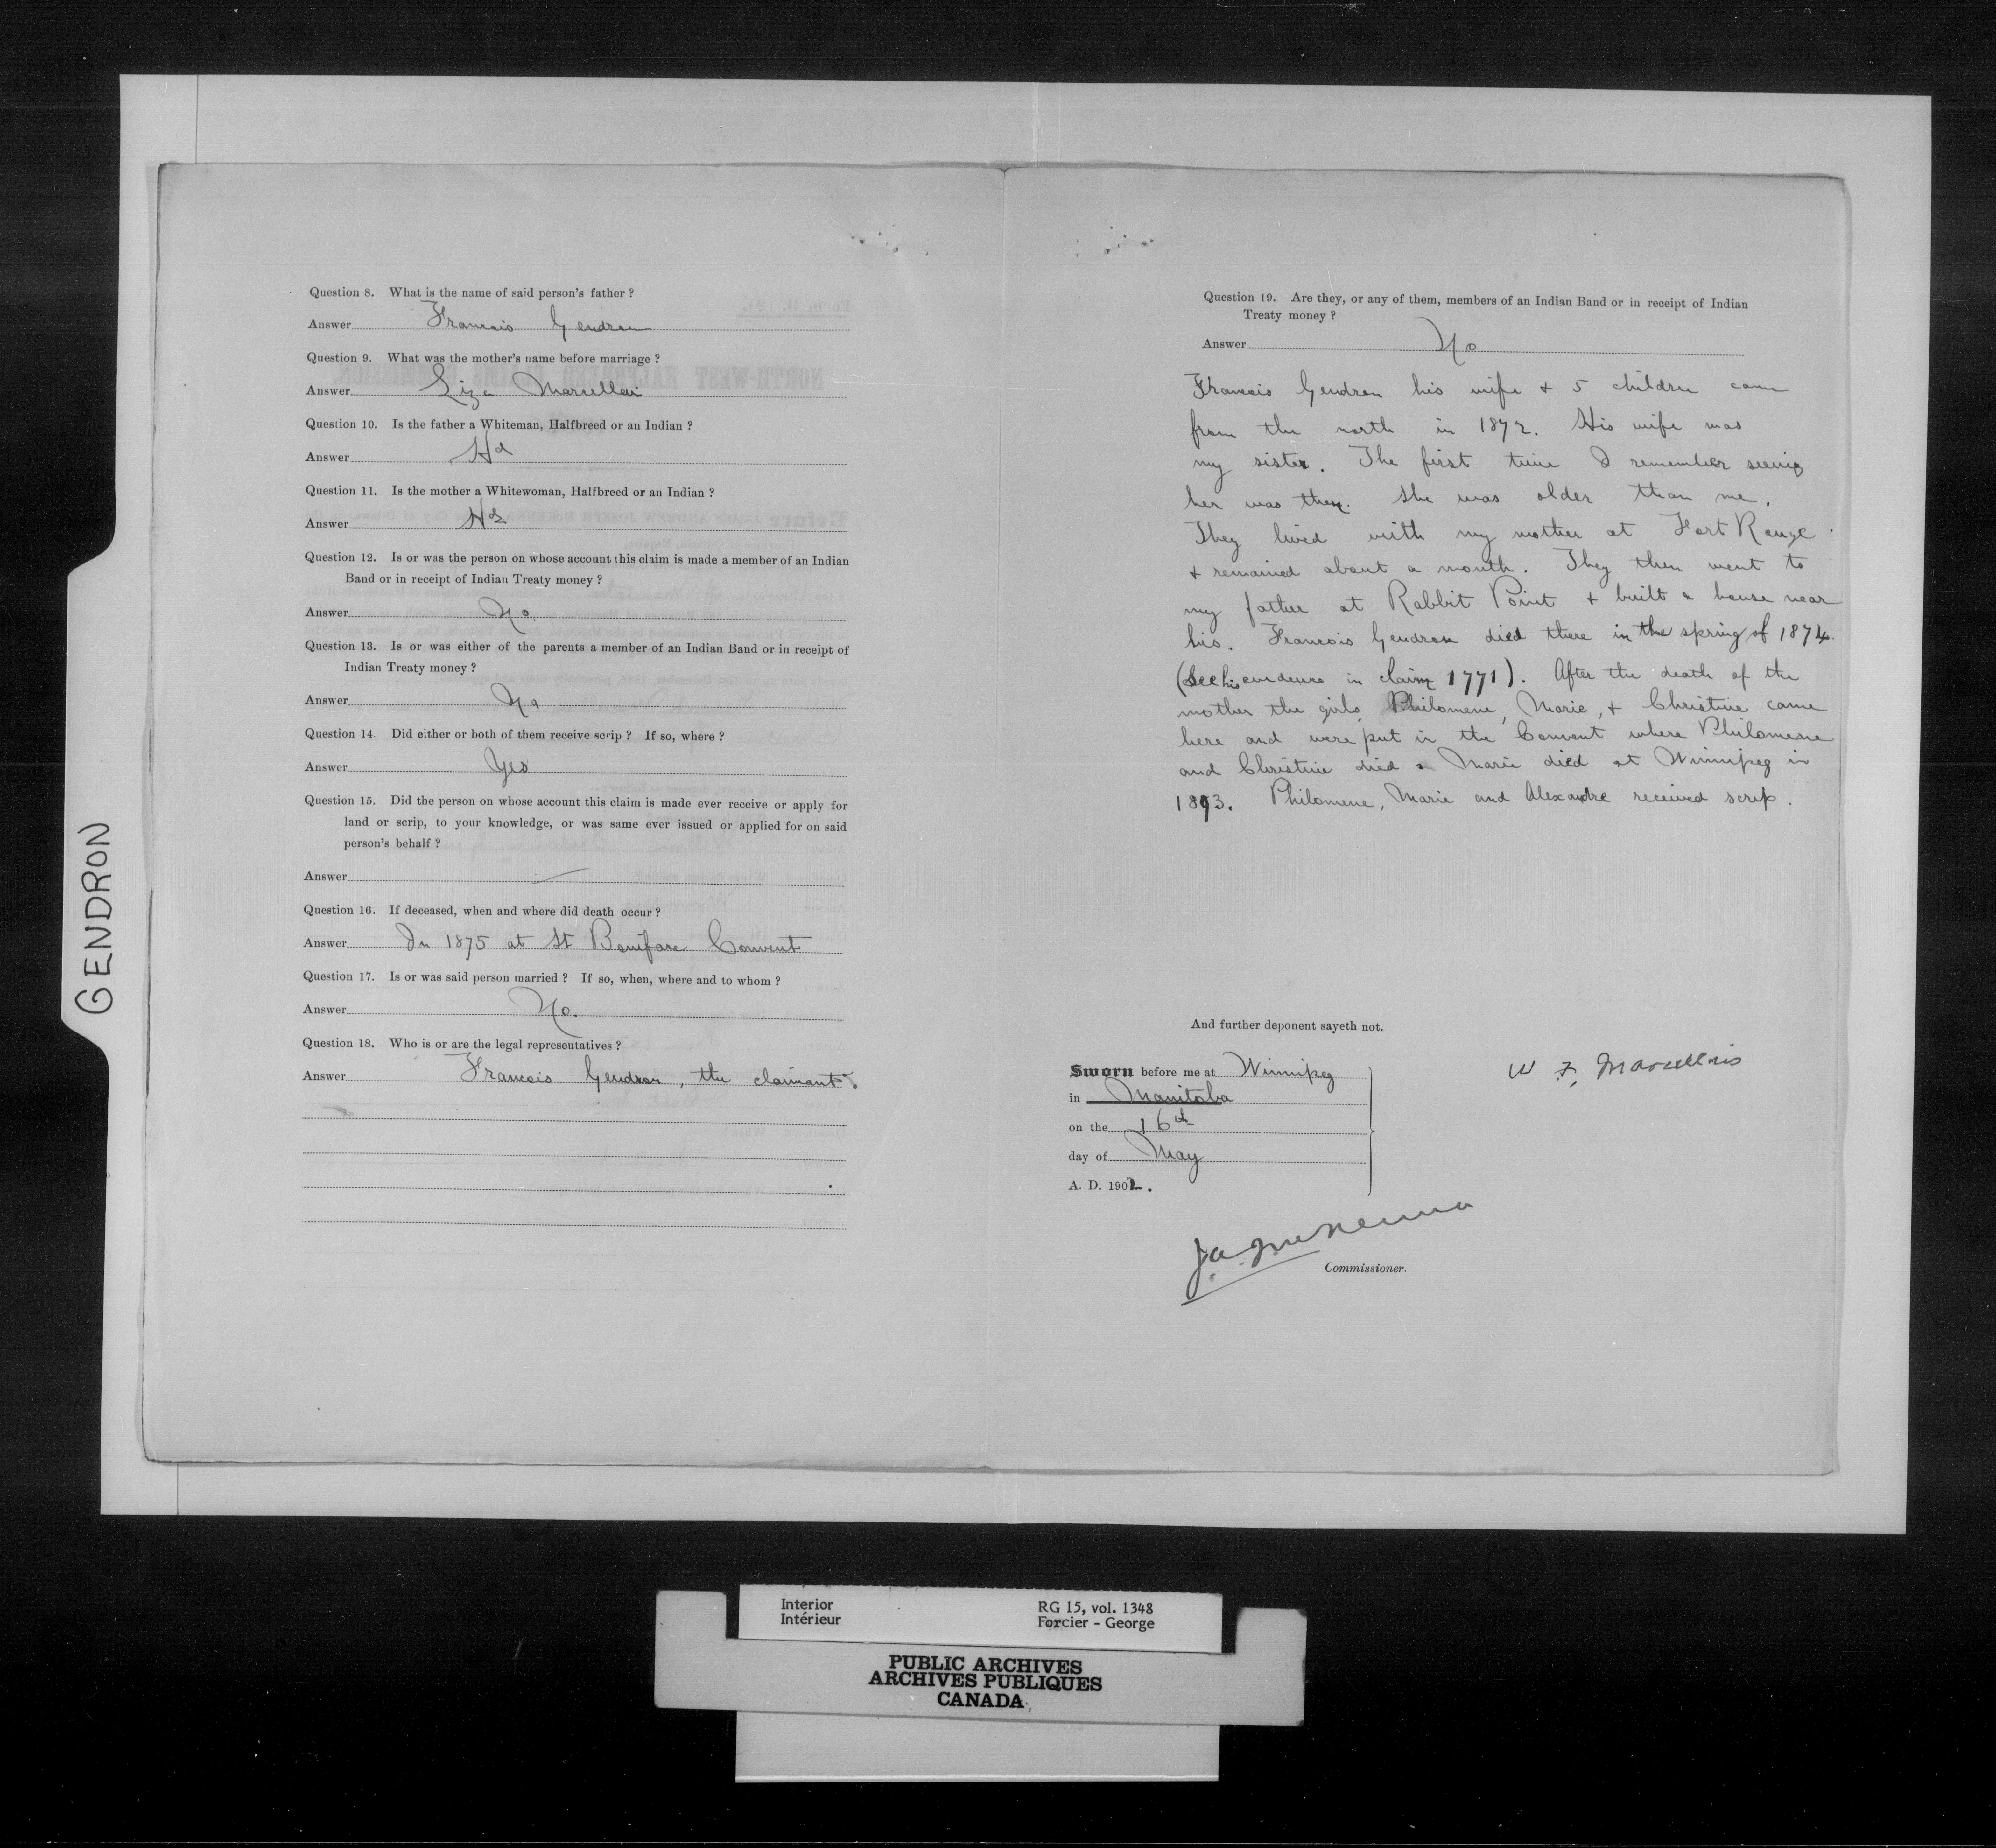 GENDRON
Question 8. What is the name of said person's father ?
Answer Francois Gendron
Question 9. What was the mother's name before marriage ?
Answer Liza Marcellais
Question 10. Is the father a Whiteman, Halfbreed or an Indian ?
Answer Hd
Question 11. Is the mother a Whitewoman, Halfbreed or an Indian ?
Answer Hd
Question 12. Is or was the person on whose account this claim is made a member of an Indian
Band or in receipt of Indian Treaty money ?
Answer No.
Question 13. Is or was either of the parents a member of an Indian Band or in receipt of
Indian Treaty money ?
Answer No
Question 14. Did either or both of them receive scrip ? If so, where ?
Answer Yes
Question 15. Did the person on whose account this claim is made ever receive or apply for
land or scrip, to your knowledge, or was same ever issued or applied for on said
person's behalf ?
Answer —
Question 16. If deceased, when and where did death occur ?
Answer In 1875 at St Boniface Convent
Question 17. Is or was said person married ? If so, when, where and to whom ?
Answer No.
Question 18. Who is or are the legal representatives ?
Answer Francois Gendron, the claimant.
Question 19. Are they, or any of them, members of an Indian Band or in receipt of Indian
Treaty money ?
Answer No
Francois Gendron his wife + 5 children came
from the north in 1872. His wife was
my sister. The first time I remember seeing
her was then. She was older than me.
They lived with my mother at Fort Rouge
+ remained about a month. They then went to
my father at Rabbit Point + built a house near
his. Francois Gendron died there in the spring of 1874.
(See his evidence in claim 1771). After the death of the
mother the girls, Philomene, Marie, + Christine came
here and were put in the Convent where Philomene
and Christine died + Marie died at Winnipeg in
1893. Philomene, Marie and Alexandre received scrip.
And further deponent sayeth not.
Sworn before me at Winnipeg
in Manitoba
on the 16th
day of May
A. D. 1902.
W F, Marcellais
J.A. McKenna
Commissioner.
Interior RG 15, vol. 1348
Intérieur Forcier - George
PUBLIC ARCHIVES
ARCHIVES PUBLIQUES
CANADA